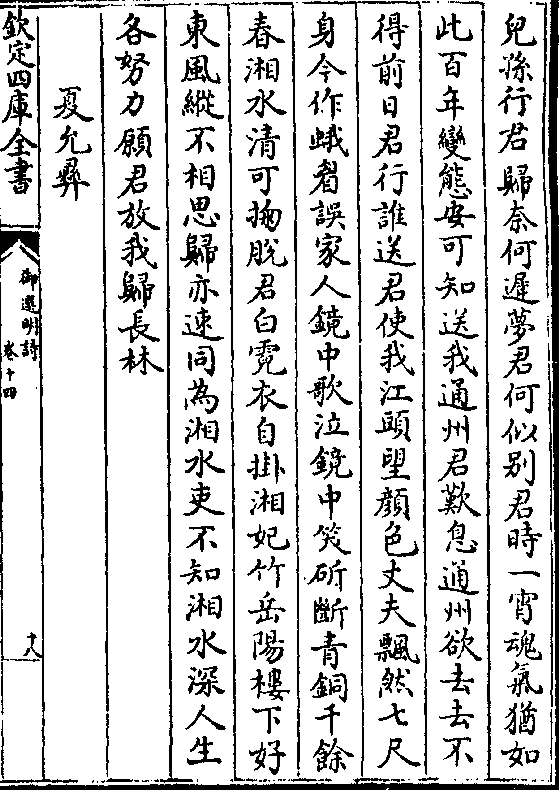 兒滁行君歸奈何遲夢君何似别君時一宵魂氣猶如
此百年變態安可知送我通州君歎息通州欲去去不
得前日君行誰送君使我江頭望顔色丈夫飄然七尺
身今作蛾眉誤家人鏡中歌泣鏡中笑斫斷青銅千餘
春湘水清可掬脫君白霓衣自掛湘妃竹岳陽樓下好
東風縱不相思歸亦速同為湘水吏不知湘水深人生
各努力願君放我歸長林
夏允彝
欽定四庫全書
御選明詩
卷十四
十八